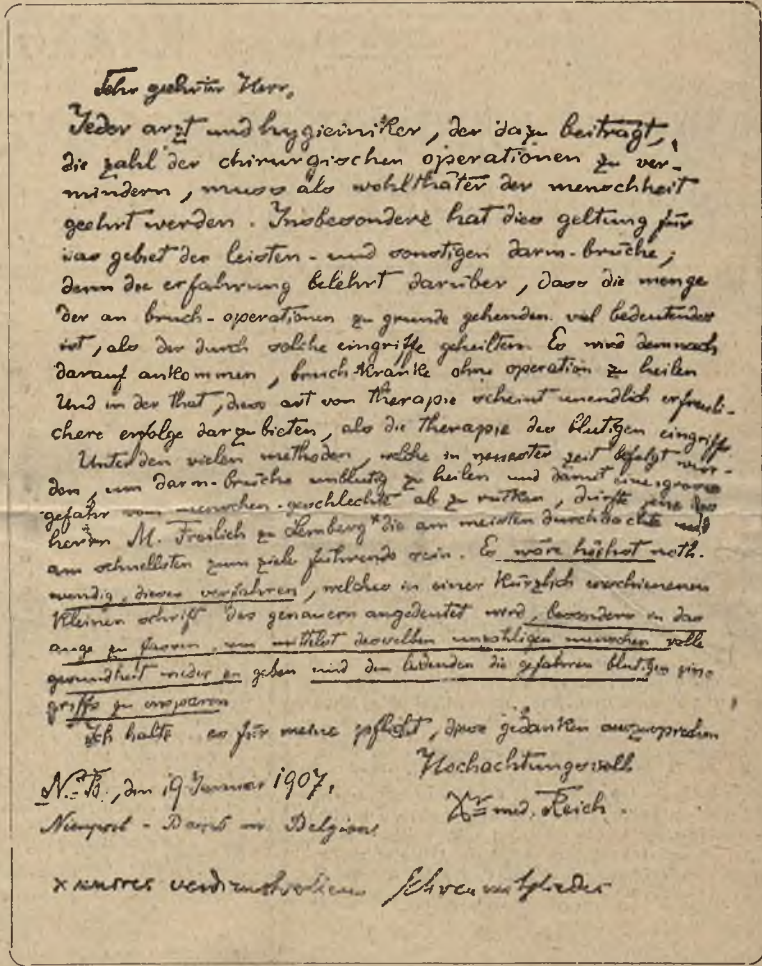 Sehr geehrter Herr,
Jeder arzt und hygieiniker, der dazu beiträgt,
die zahl der chirurgischen operationen zu ver-
mindern, muss als wohlthäter der menschheit
geehrt werden. Insbesondere hat dies geltung für
das gebiet der leisten- und sonstigen darm-brüche;
denn die erfahrung belehrt darüber, dass die menge
der an bruch-operationen zu grunde gehenden viel bedeutender
ist, als der durch solche eingriffe geheilten. Es wird demnach
darauf ankommen, bruch-kranke ohne operation zu heilen
Und in der that, diese art von therapie scheint unendlich erfreuli-
chere erfolge darzubieten, als die therapie des blutigen eingriffs
Unter den vielen methoden, welche in neuester zeit befolgt wur-
den, um darm-brüche unblutig zu heilen und damit eine grosse
gefahr vom menschen-geschlechte ab zu rücken, dürfte jene des
herrn M. Freilich zu Lemberg* die am meisten durchdachte und
am schnellsten zum ziele führende sein. Es wäre höchst noth-
wendig, dieses verfahren, welches in einer kürzlich erschienenen
kleinen schrift des genauern angedeutet wird, besonders in das
auge zu fassen, um mittelst desselben unzähligen menschen volle
gesundheit wieder zu geben und den leidenden die gefahren blutiger ein-
griffe zu ersparen
Ich halte es für meine pflicht, diese gedanken auszusprechen
Hochachtungsvoll
N.-B., den 19 Januar 1907.
Dr med. Reich.
Nieuport - Bains in Belgien
x unseres verdienstvollen Ehrenmitgliedes